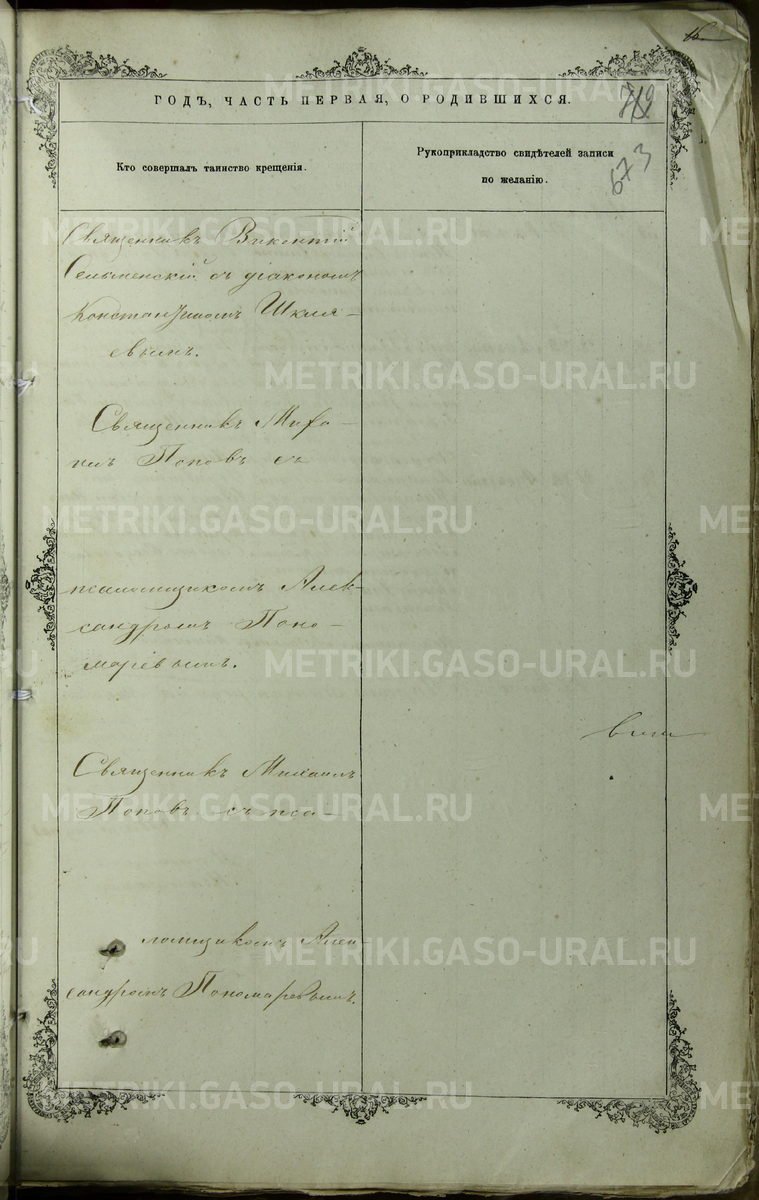 ГОДЪ, ЧАСТЬ ПЕРВАЯ, О РОДИВШИХСЯ.
719
673
Кто совершалъ таинство крещенія.
Рукоприкладство свидѣтелей записи
по желанію.
Священникъ Викентій
съ діакономъ
Константиномъ Шкля-
евымъ.
Священникъ Миха-
илъ Поповъ съ
псаломщикомъ Алек-
сандромъ Поно-
маревымъ.
Священникъ Михаилъ
Поповъ съ пса-
ломщикомъ Алек-
сандромъ Пономаревымъ.
METRIKI.GASO-URAL.RU